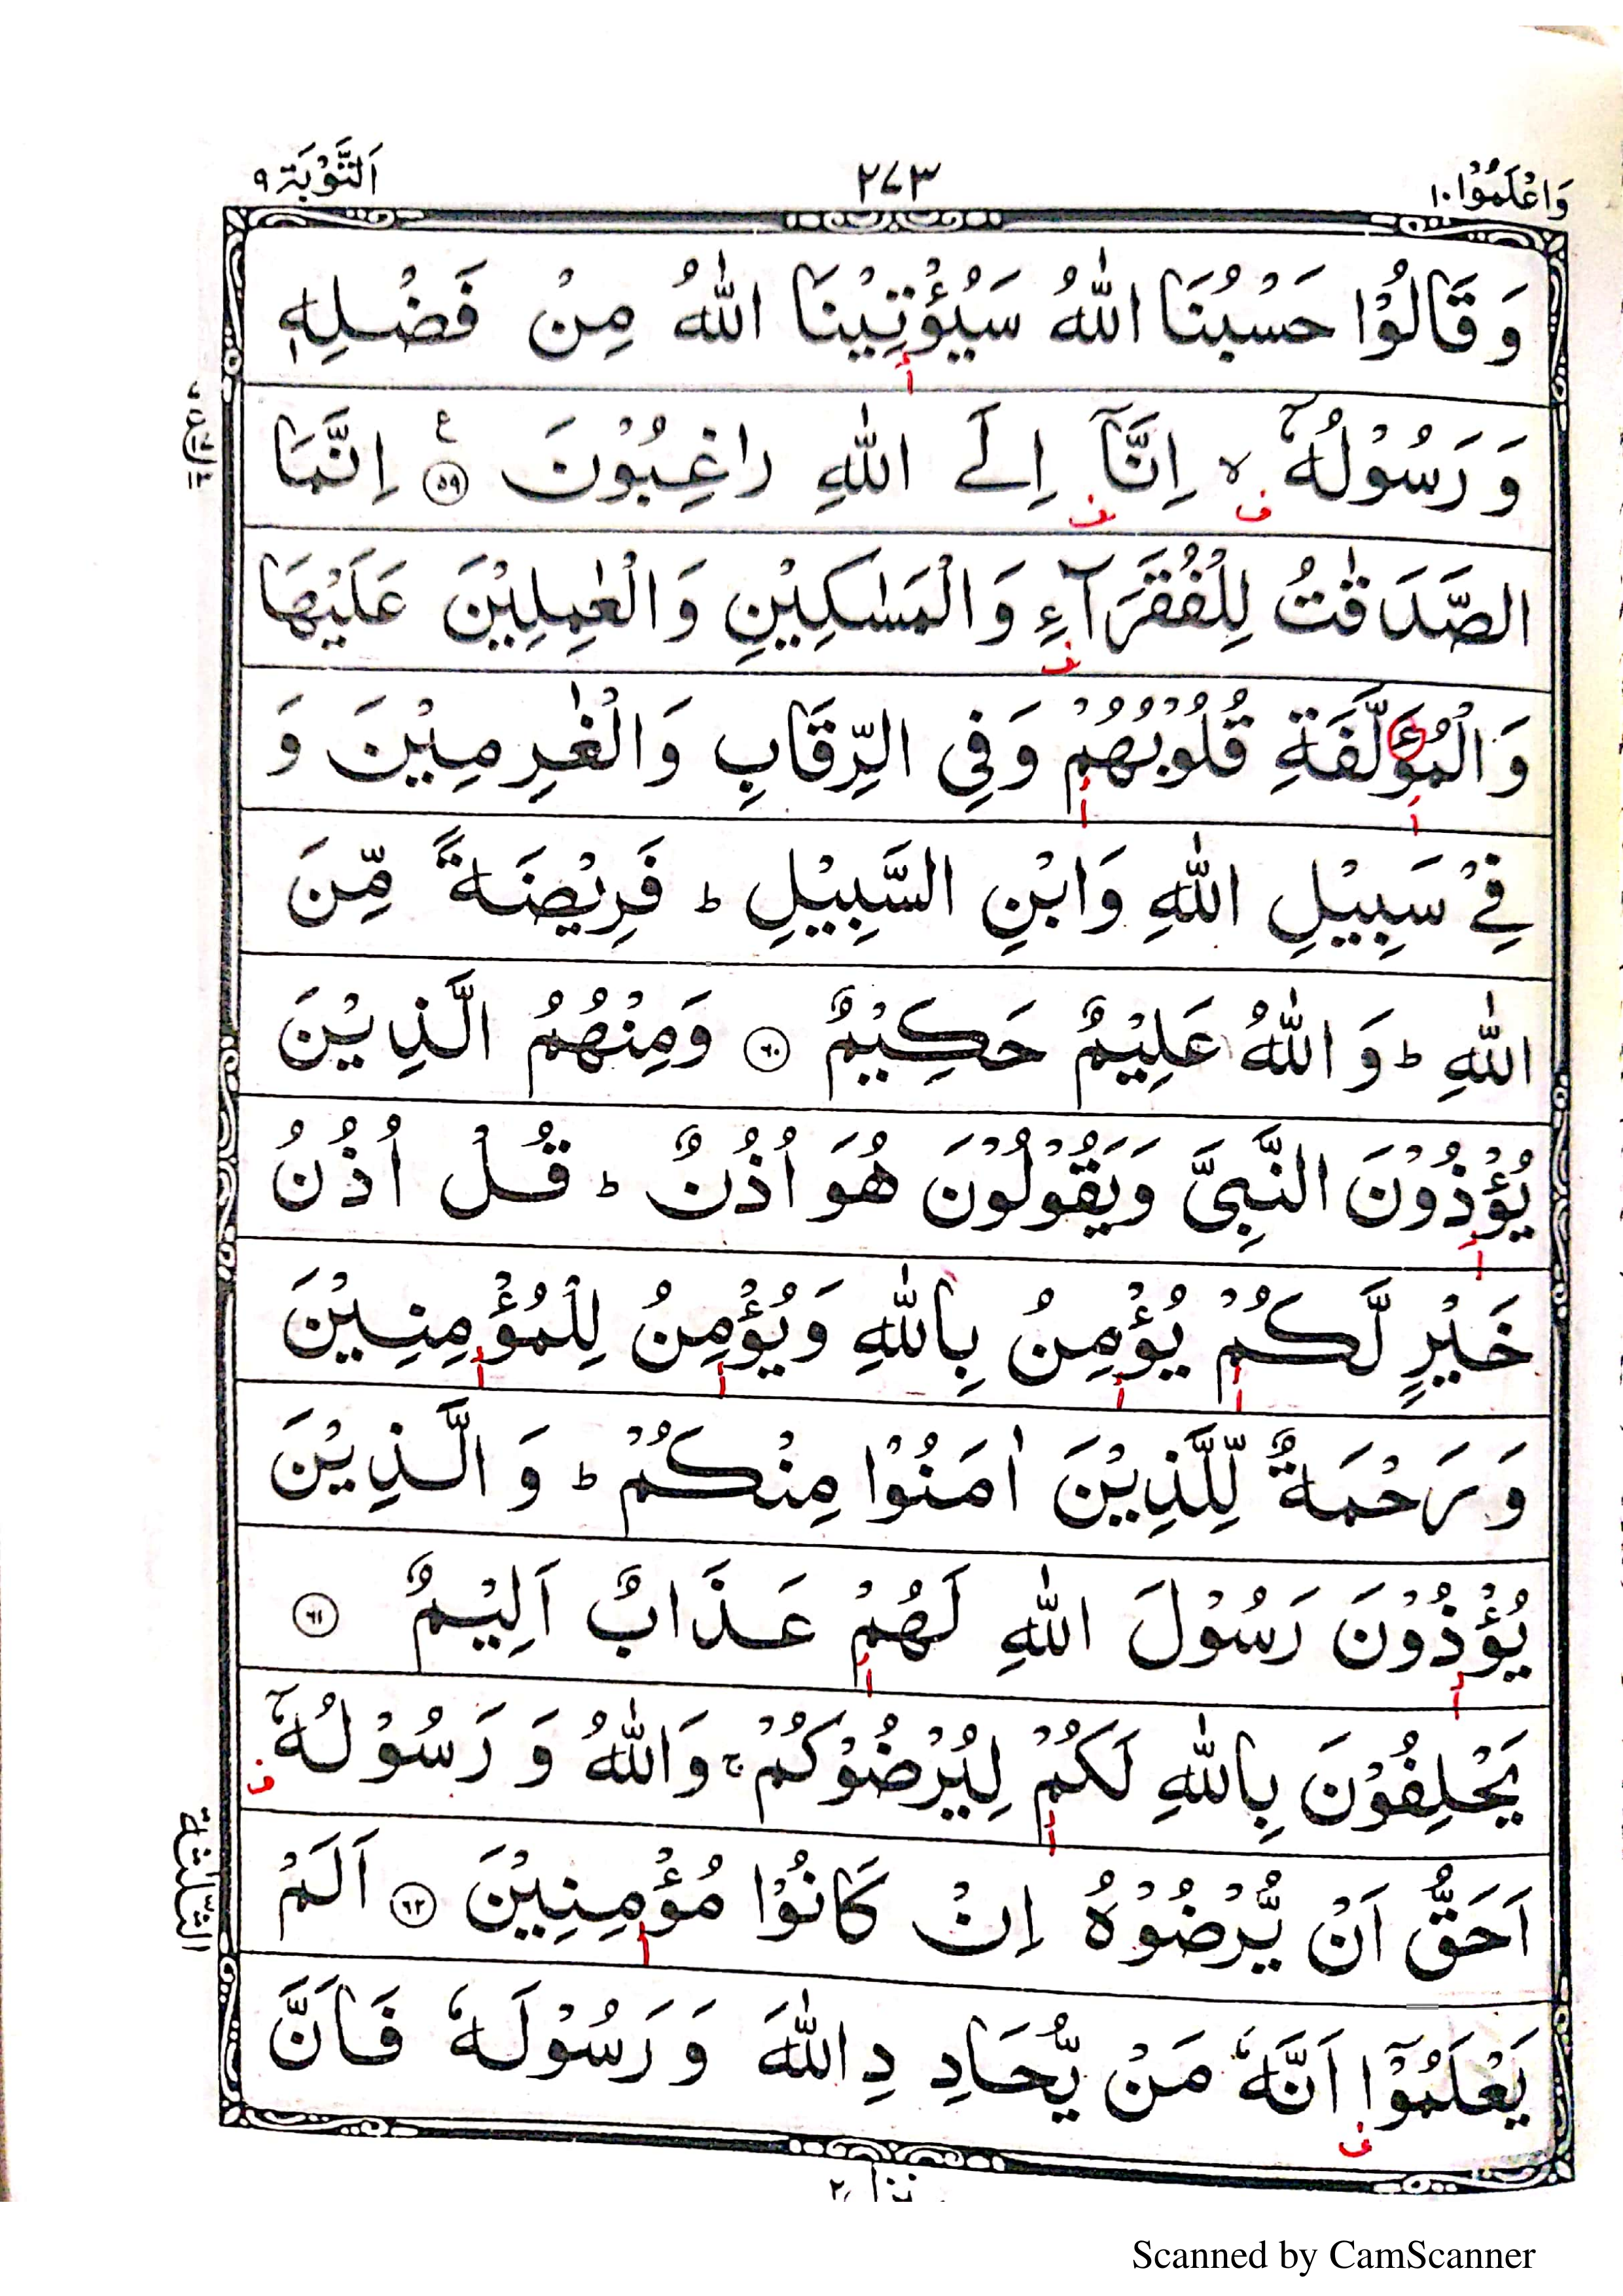 وَاعْلَمُوْا ١٠ ٢٧٣ اَلتَّوْبَة ٩
وَ قَالُوْا حَسْبُنَا اللّٰهُ سَيُؤْتِيْنَا اللّٰهُ مِنْ فَضْلِهٖ
وَ رَسُوْلُهٗۤ ۙ اِنَّاۤ اِلَى اللّٰهِ رٰغِبُوْنَ ۧ ٥٩ اِنَّمَا
الصَّدَقٰتُ لِلْفُقَرَآءِ وَالْمَسٰكِيْنِ وَالْعٰمِلِيْنَ عَلَيْهَا
وَالْمُؤَلَّفَةِ قُلُوْبُهُمْ وَفِى الرِّقَابِ وَالْغٰرِمِيْنَ وَ
فِيْ سَبِيْلِ اللّٰهِ وَابْنِ السَّبِيْلِ ؕ فَرِيْضَةً مِّنَ
اللّٰهِ ؕ وَ اللّٰهُ عَلِيْمٌ حَكِيْمٌ ٦٠ وَمِنْهُمُ الَّذِيْنَ
يُؤْذُوْنَ النَّبِىَّ وَيَقُوْلُوْنَ هُوَ اُذُنٌ ؕ قُلْ اُذُنُ
خَيْرٍ لَّكُمْ يُؤْمِنُ بِاللّٰهِ وَيُؤْمِنُ لِلْمُؤْمِنِيْنَ
وَ رَحْمَةٌ لِّلَّذِيْنَ اٰمَنُوْا مِنْكُمْ ؕ وَ الَّذِيْنَ
يُؤْذُوْنَ رَسُوْلَ اللّٰهِ لَهُمْ عَذَابٌ اَلِيْمٌ ٦١
يَحْلِفُوْنَ بِاللّٰهِ لَكُمْ لِيُرْضُوْكُمْ ۚ وَاللّٰهُ وَ رَسُوْلُهٗۤ
اَحَقُّ اَنْ يُّرْضُوْهُ اِنْ كَانُوْا مُؤْمِنِيْنَ ٦٢ اَلَمْ
يَعْلَمُوْۤا اَنَّهٗ مَنْ يُّحَادِدِ اللّٰهَ وَ رَسُوْلَهٗ فَاَنَّ
الثلثة
Scanned by CamScanner